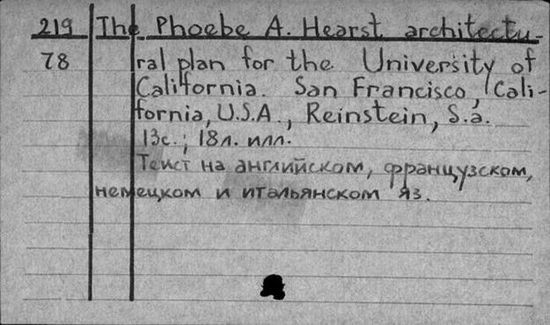 219 The Phoebe A. Hearst architectu-
78 ral plan for the University of
California. San Francisco, Cali-
fornia, U.S.A., Reinstein, S.a.
13с.; 18л. илл.
Текст на английском, французском,
немецком и итальянском яз.